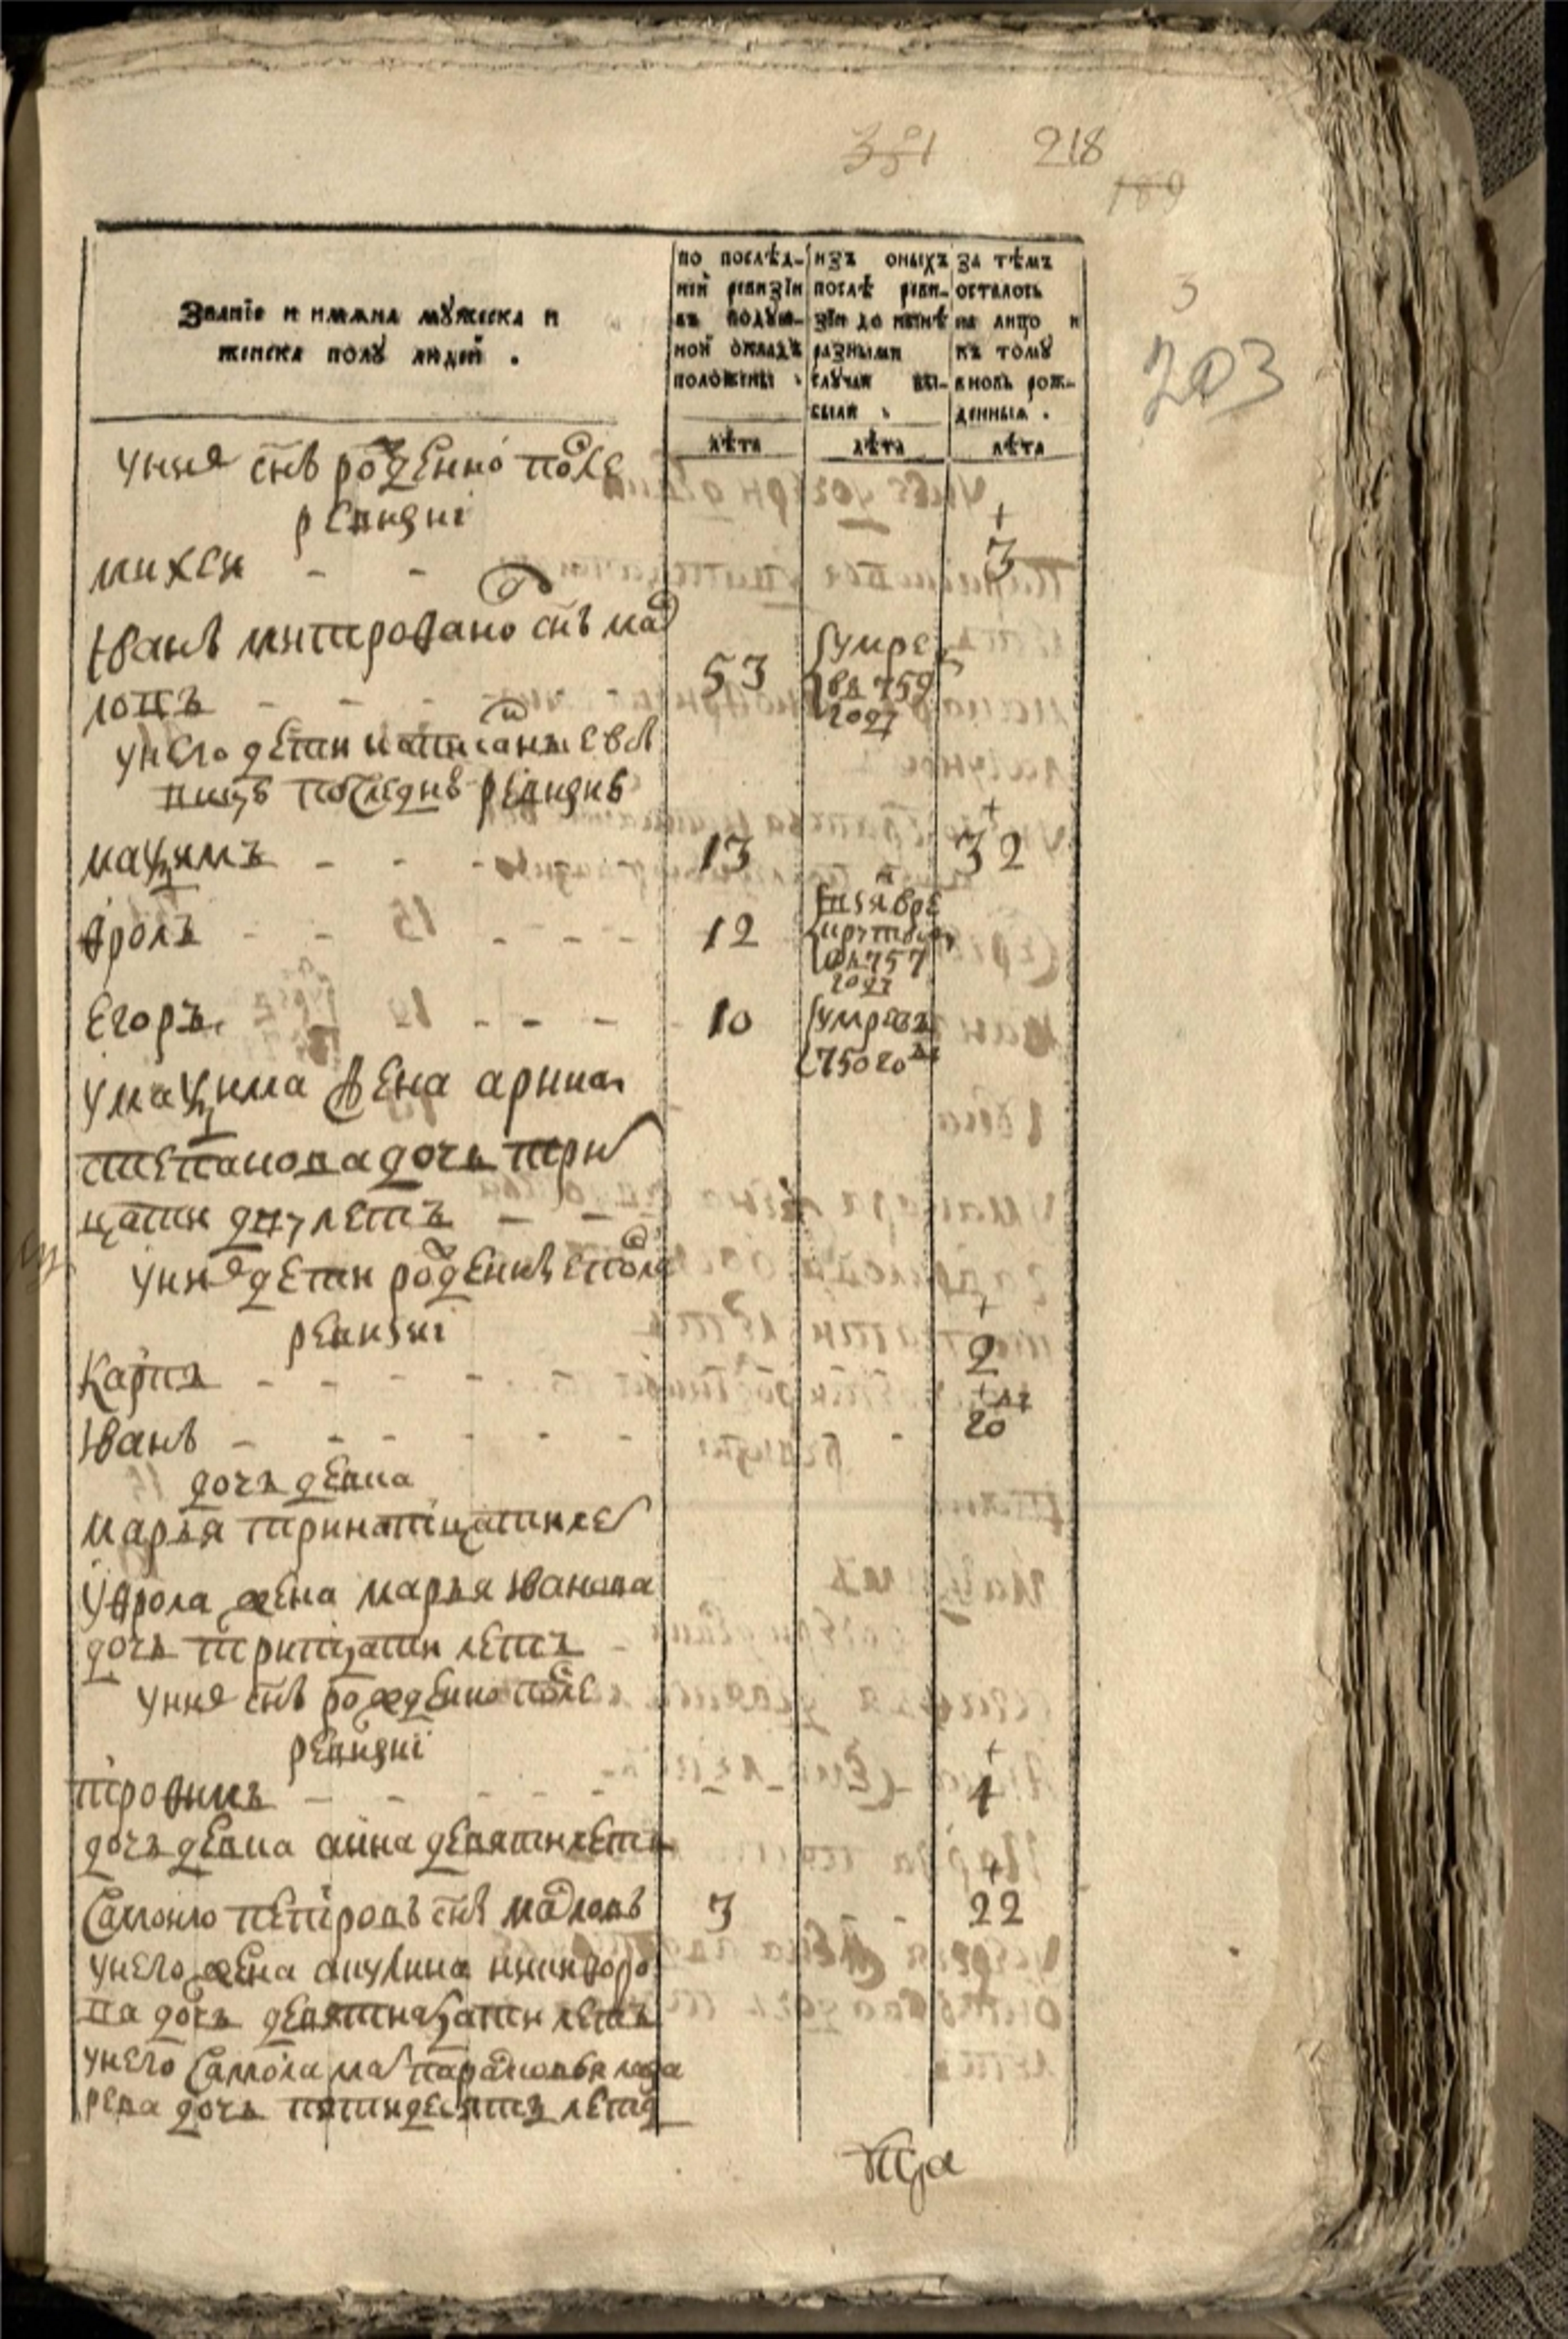 351 218
189
3
203
Званїе и имяна мужеска и
женска полу людей .
по послѣд-
ней ревизїи
въ подуш-
ной окладъ
положены
изъ оныхъ
послѣ реви-
зїи до нынѣ
разными
случаи вы-
были
за тѣмъ
осталось
на лицо и
къ тому
вновь рож-
денныя .
лѣта лѣта лѣта
унея снъ рожденно после
ревизиі
михеи - - 3
Иванъ митрофано снъ мад
ловъ 53 умре
въ 759
году
унего дети написаные въ
последнѣ ревизиѣ
мақимъ - - - 13 32
Фролъ - - - 12
757
году
Егоръ - - - 10 умревъ
750 году
умақима жена арина
степанова дочь трı
цати дву летъ - -
унея дети рожденнѣ после
ревизиі
Карпъ - - - - 2
Иванъ - - - - - - 20
дочь девка
марья тринатцати ле
уфрола жена марья Иванова
дочь тритцати летъ
унея снъ рожденно после
ревизиі
трофимъ - - - - 4
дочь девка анна девяти летъ
Самоило петровъ снъ мадловъ 3 - - 22
унего жена акулина никифоро
ва дочь девятнатцати летъ
унего Самоıла мат парасковья лаза
рева дочь пятидесятъ летъ